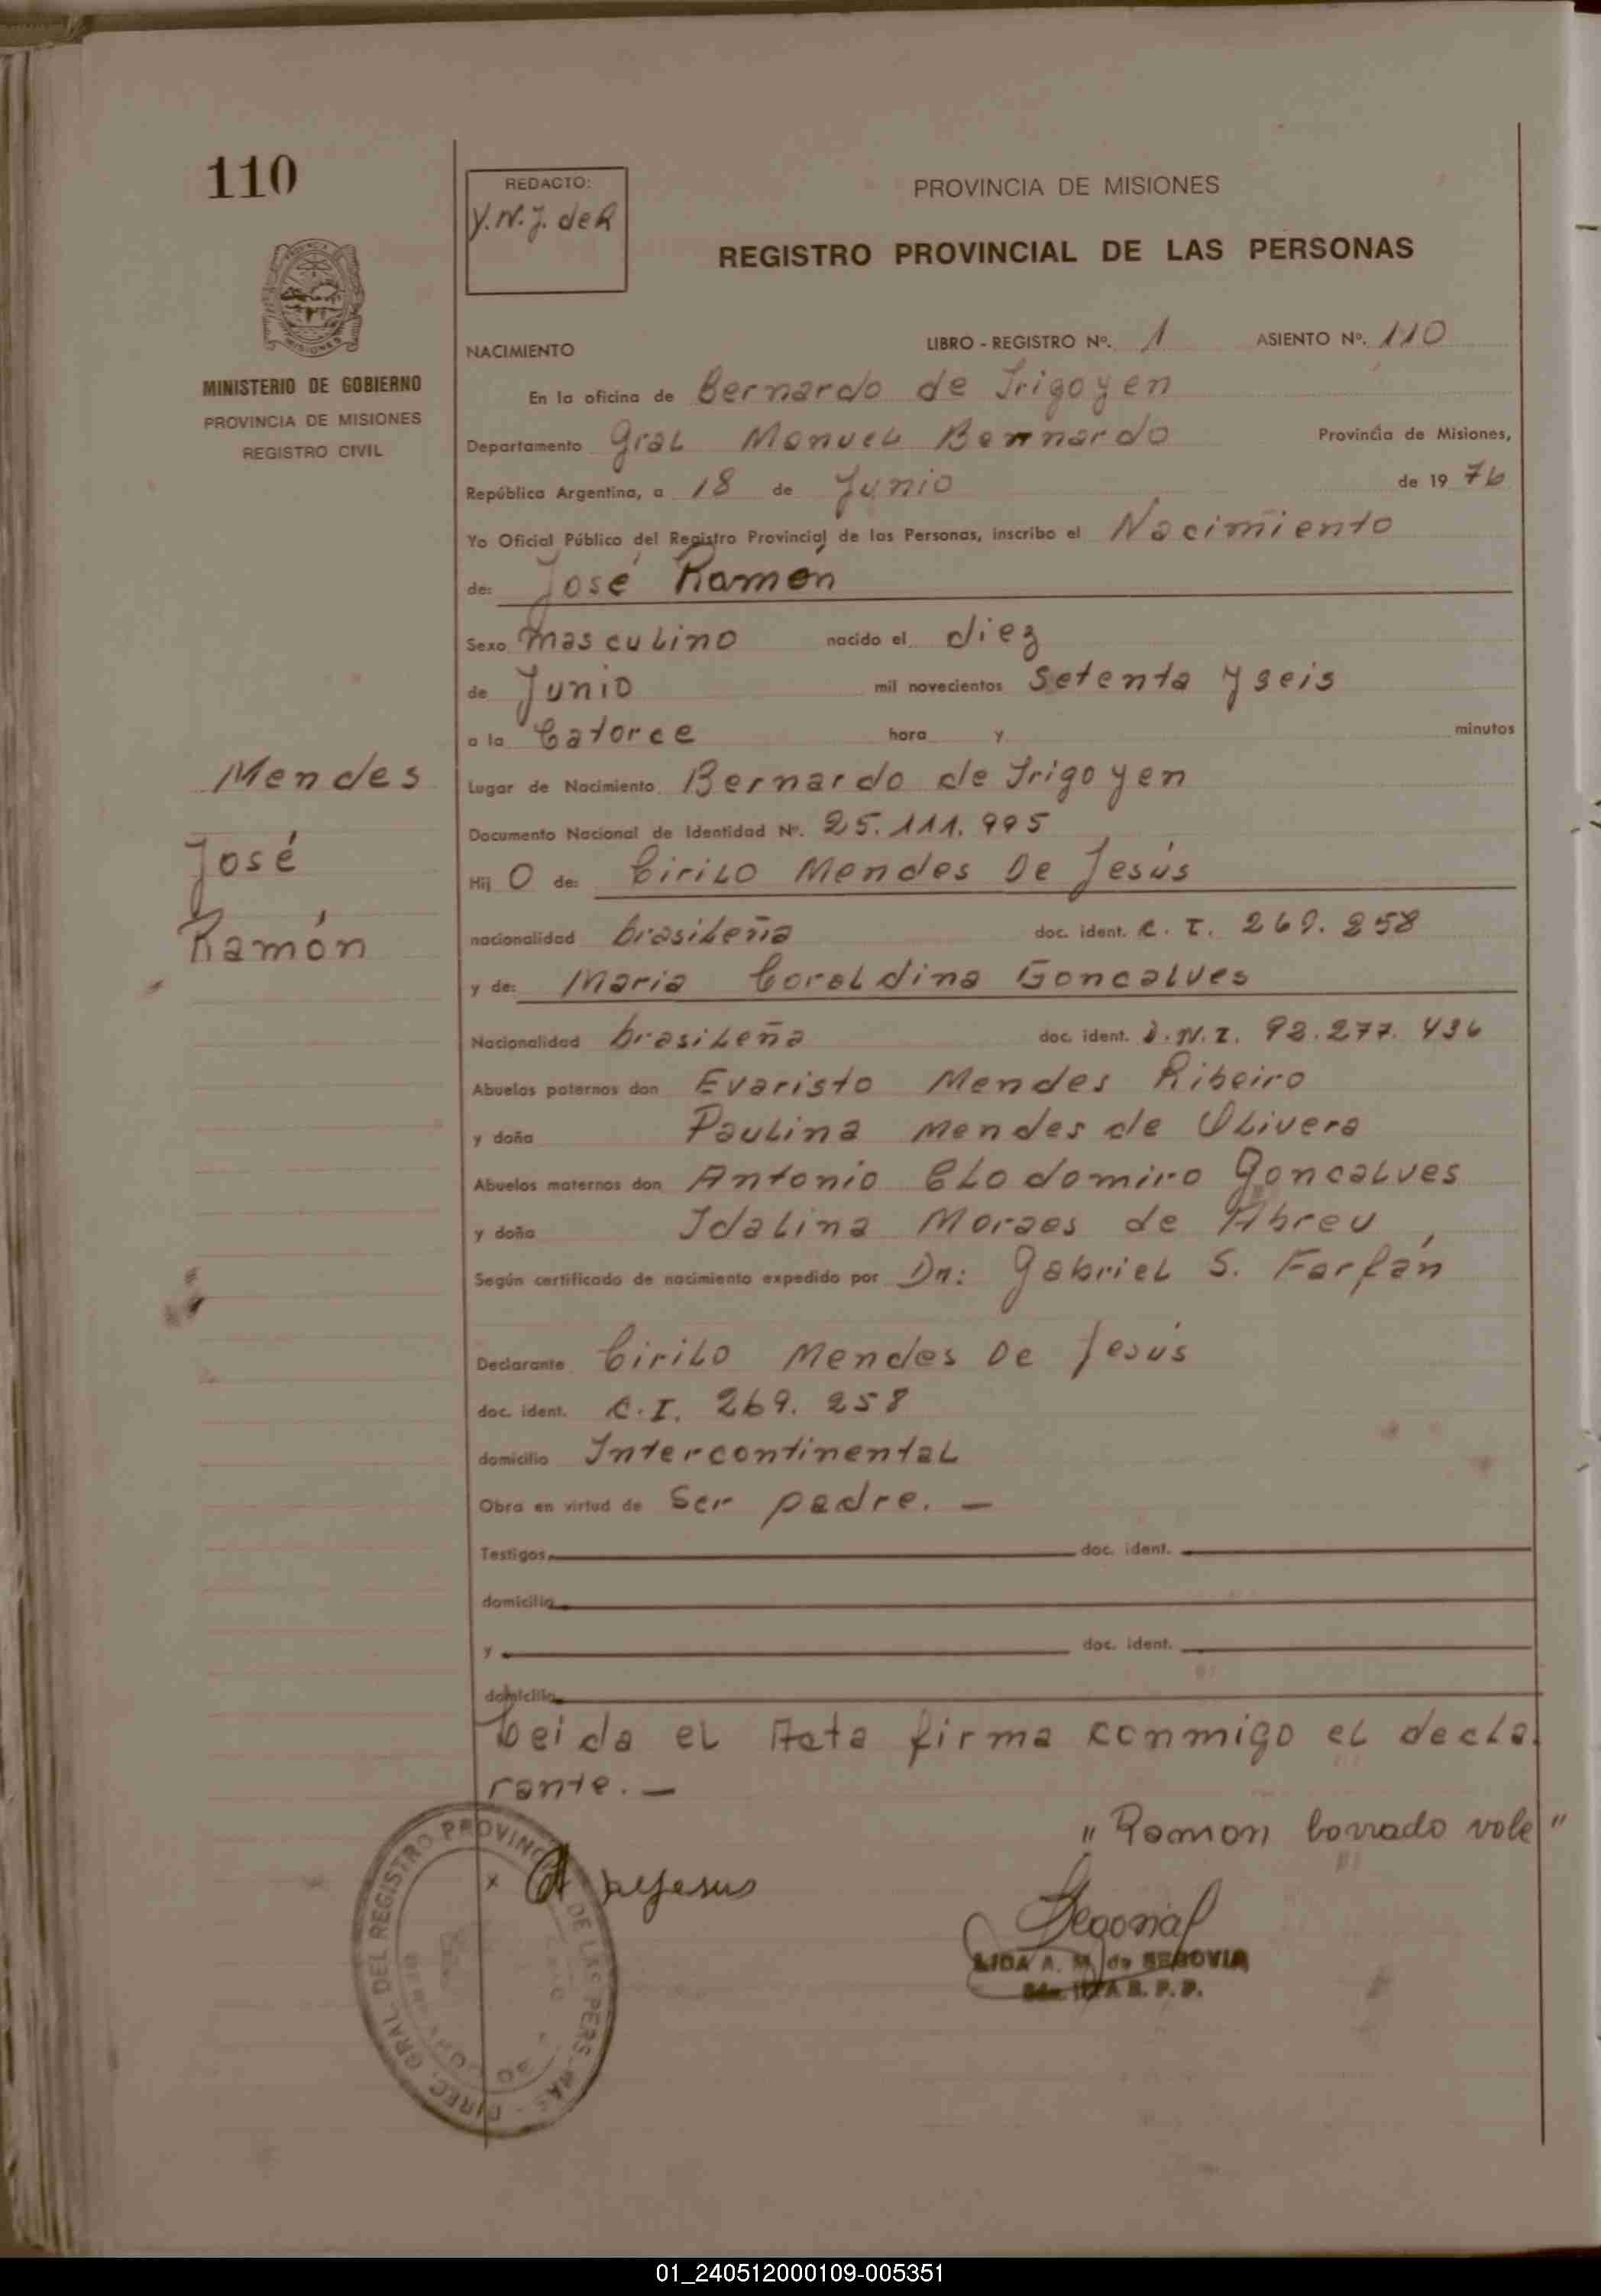 110
REDACTO:
Y.N.J. de R
PROVINCIA DE MISIONES
REGISTRO PROVINCIAL DE LAS PERSONAS
MISIONES
MINISTERIO DE GOBIERNO
PROVINCIA DE MISIONES
REGISTRO CIVIL
NACIMIENTO LIBRO - REGISTRO Nº. 1 ASIENTO Nº. 110
En la oficina de Bernardo de Irigoyen
Departamento Gral Manuel Bernardo Provincia de Misiones,
República Argentina, a 18 de Junio de 19 76
Yo Oficial Público del Registro Provincial de las Personas, inscribo el Nacimiento
de: José Ramón
Sexo masculino nacido el diez
de Junio mil novecientos setenta y seis
a la Catorce hora y minutos
Mendes
José
Ramón
Lugar de Nacimiento Bernardo de Irigoyen
Documento Nacional de Identidad Nº. 25.111.995
Hij O de: Cirilo Mendes De Jesús
nacionalidad brasileña doc. ident. C. I. 269.258
y de: Maria Coraldina Goncalves
Nacionalidad brasileña doc. ident. D.N.I. 92.277.436
Abuelos paternos don Evaristo Mendes Ribeiro
y doña Paulina Mendes de Olivera
Abuelos maternos don Antonio Clodomiro Goncalves
y doña Idalina Moraes de Abreu
Según certificado de nacimiento expedido por Dn: Gabriel S. Farfán
Declarante Cirilo Mendes De Jesús
doc. ident. C.I. 269.258
domicilio Intercontinental
Obra en virtud de Ser padre. —
Testigos doc. ident.
domicilio
y doc. ident.
domicilio
Leida el Acta firma conmigo el decla
rante. —
"Ramon borrado vale"
DIREC. GRAL DEL REGISTRO PROVINC. DE LAS PERSONAS
x de Jesus
LIDA A. M. de SEGOVIA
R. P. P.
01_240512000109-005351